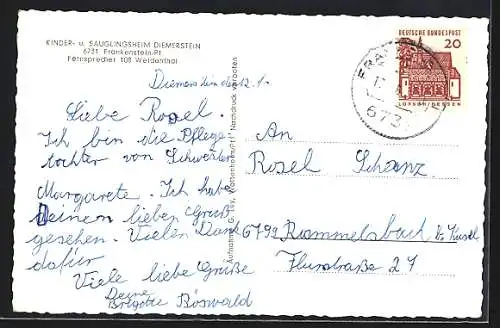 KINDER- u. SÄUGLINGSHEIM DIEMERSTEIN
6731 Frankenstein-Pf.
Fernsprecher 108 Weidenthal
Diemerstein den 12.1.
Liebe Rosel.
Ich bin die Pflege
tochter von Schwester
Margarete. Ich habe
Deinem lieben Gruß
gesehen. Vielen Dank
dafür
Viele liebe Grüße
Deine
Brigitte Boswald
Nachdruck verboten
DEUTSCHE BUNDESPOST
20
LORSCH/HESSEN
673
An
Rosel Schanz
6799 Rammelsbach b. Kusel
Flurstraße 27